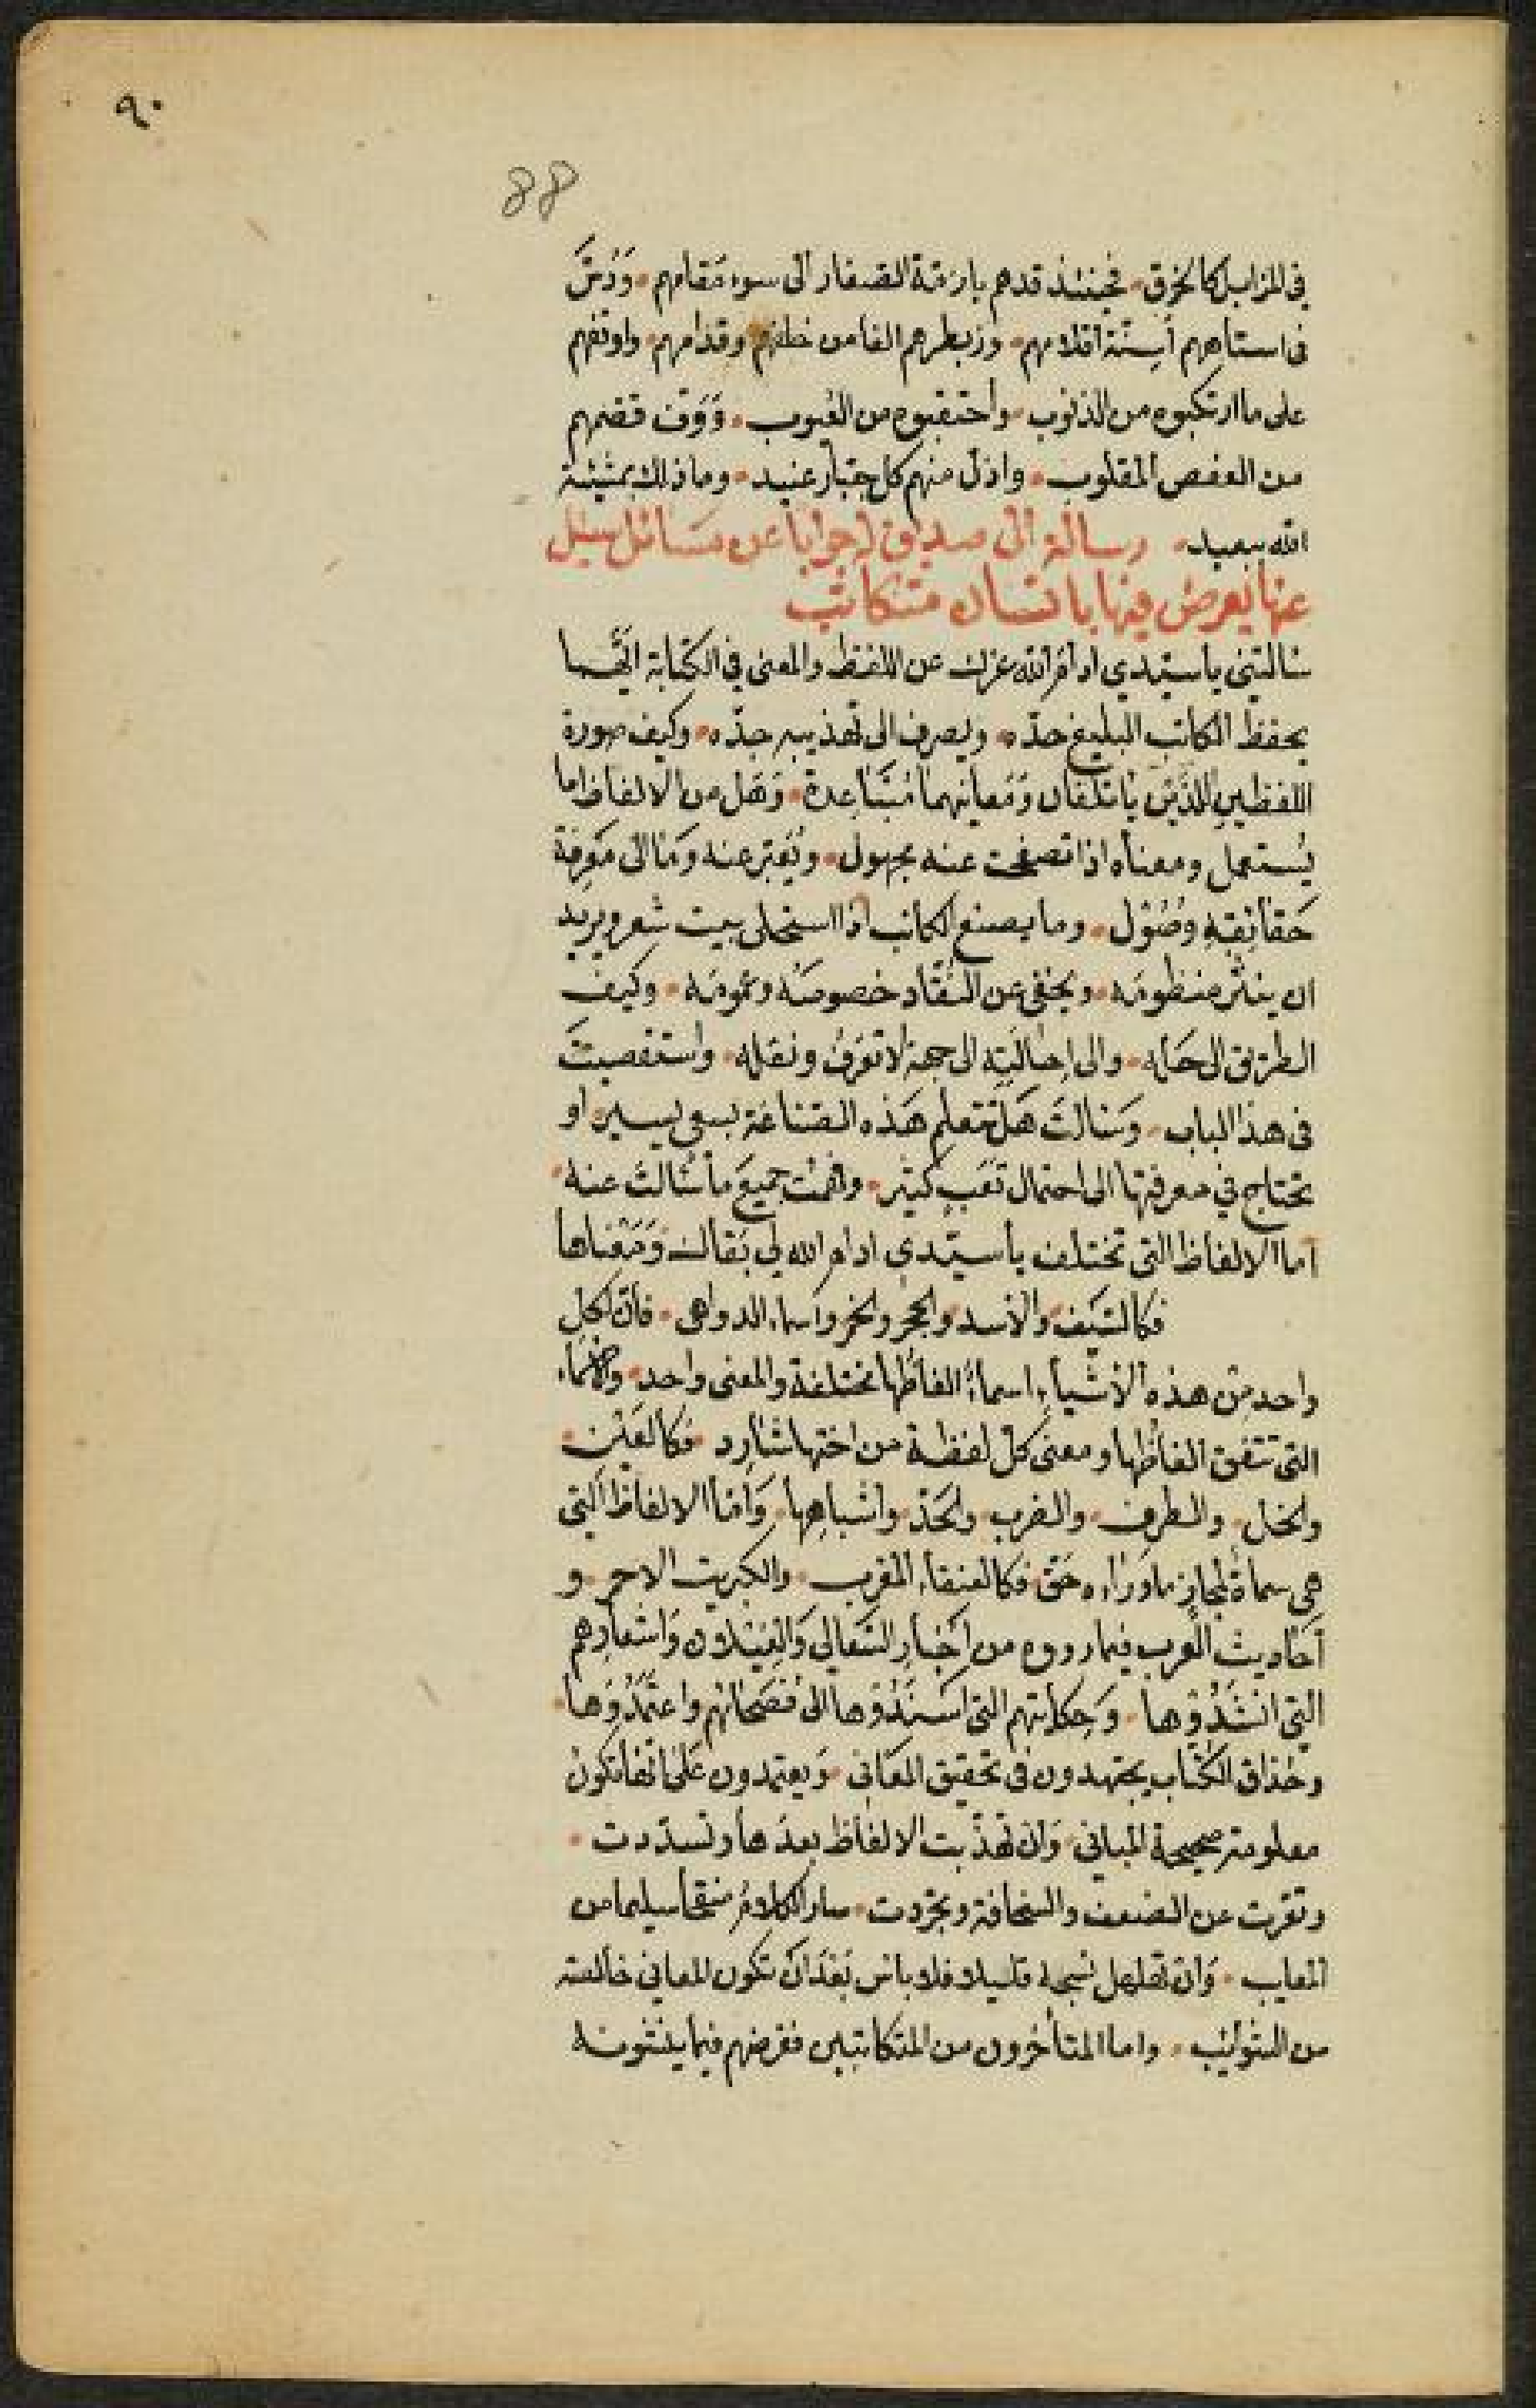 ٩٠
88
في المزابل كالخرق فحينئذ قدهم بازمة الصغار الى سوء مقامهم ورش
في استاههم اسنة اقلامهم وزيطرهم الفا من خلفهم وقدامهم واوقفهم
على ما ارتكبوه من الذنوب واحتقبوه من العيوب ووف قضمهم
من العفص المقلوب واذل منهم كل جبار عنيد وما ذلك بمشيئة
الله ببعيد رسالة الى صديق له جوابا عن مسائل سيل
عنها يعرض فيها بانسان متكاتب
سالتني يا سيدي ادام الله عزك عن اللفظ والمعنى في الكتابة ايهما
يحفظ الكاتب البليغ حده ويصرف الى تهذيبه جده وكيف صورة
اللفظين اللذين يأتلفان ومعانيهما متباعدة وهل من الالفاظ ما
يستعمل ومعناه اذا تصفحت عنه مجهول ويعبر عنه وما الى معرفة
حقائقه وصول وما يصنع الكاتب اذا استحلى بيت شعر ويريد
ان ينثر منظومه ويخفي عن النقاد خصوصه وعمومه وكيف
الطريق الى حله والى احالته الى جهة لا تعرف ونقله واستقصيت
في هذا الباب وسالت هل تتعلم هذه الصناعة بسعي يسير او
تحتاج في معرفتها الى احتمال تعب كثير وفهمت جميع ما سالت عنه
اما الالفاظ التي تختلف يا سيدي ادام الله لي بقاك ومعناها
فكالسيف والاسد والحجر والخمر واسماء الدواهي فان لكل
واحد من هذه الاشياء اسماء الفاظها مختلفة والمعنى واحد
التي تتفق الفاظها ومعنى كل لفظة من اختها شارد فكالعين
والخال والطرف والغرب والخد واشباهها واما الالفاظ التي
هي سماة لمجاز ما وراءه حق فكالعنقاء المغرب والكبريت الاحمر و
احاديث العرب فيما رووه من اخبار السعالي والغيلان واشعارهم
التي انشدوها وحكاياتهم التي اسندوها الى فصحائهم واعتمدوها
وحذاق الكتاب يجتهدون في تحقيق المعاني ويعتمدون على انها تكون
معلومة صحيحة المباني وان تهذبت الالفاظ بعدها وتسددت
وتعرت عن الضعف والسخافة وتجردت صار الكلام منقحا سليما من
المعايب وان تهلهل نسجه قليلا فلا باس بعد ان تكون المعاني خالصة
من الشوائب واما المتأخرون من المتكاتبين فغرضهم فيما ينشونه